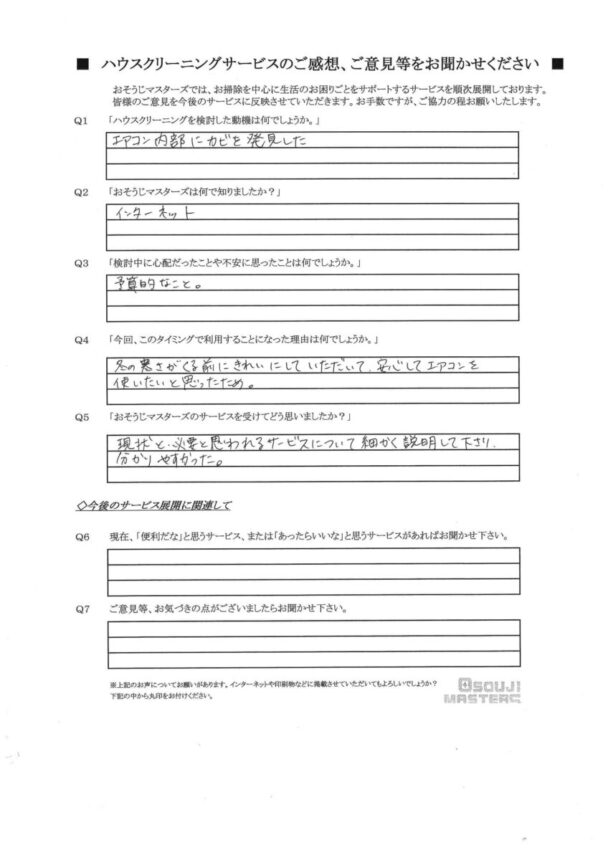 ■ ハウスクリーニングサービスのご感想、ご意見等をお聞かせください ■
おそうじマスターズでは、お掃除を中心に生活のお困りごとをサポートするサービスを順次展開しております。
皆様のご意見を今後のサービスに反映させていただきます。お手数ですが、ご協力の程お願いしたします。
Q1 「ハウスクリーニングを検討した動機は何でしょうか。」
エアコン内部にカビを発見した
Q2 「おそうじマスターズは何で知りましたか？」
インターネット
Q3 「検討中に心配だったことや不安に思ったことは何でしょうか。」
予算的なこと。
Q4 「今回、このタイミングで利用することになった理由は何でしょうか。」
冬の寒さがくる前にきれいにしていただいて、安心してエアコンを
使いたいと思ったため。
Q5 「おそうじマスターズのサービスを受けてどう思いましたか？」
現状と、必要と思われるサービスについて細かく説明して下さり、
分かりやすかった。
◇今後のサービス展開に関連して
Q6 現在、「便利だな」と思うサービス、または「あったらいいな」と思うサービスがあればお聞かせ下さい。
Q7 ご意見等、お気づきの点がございましたらお聞かせ下さい。
※上記のお声についてお願いがあります。インターネットや印刷物などに掲載させていただいてもよろしいでしょうか？
下記の中から丸印をお付けください。
OSOUJI
MASTERS